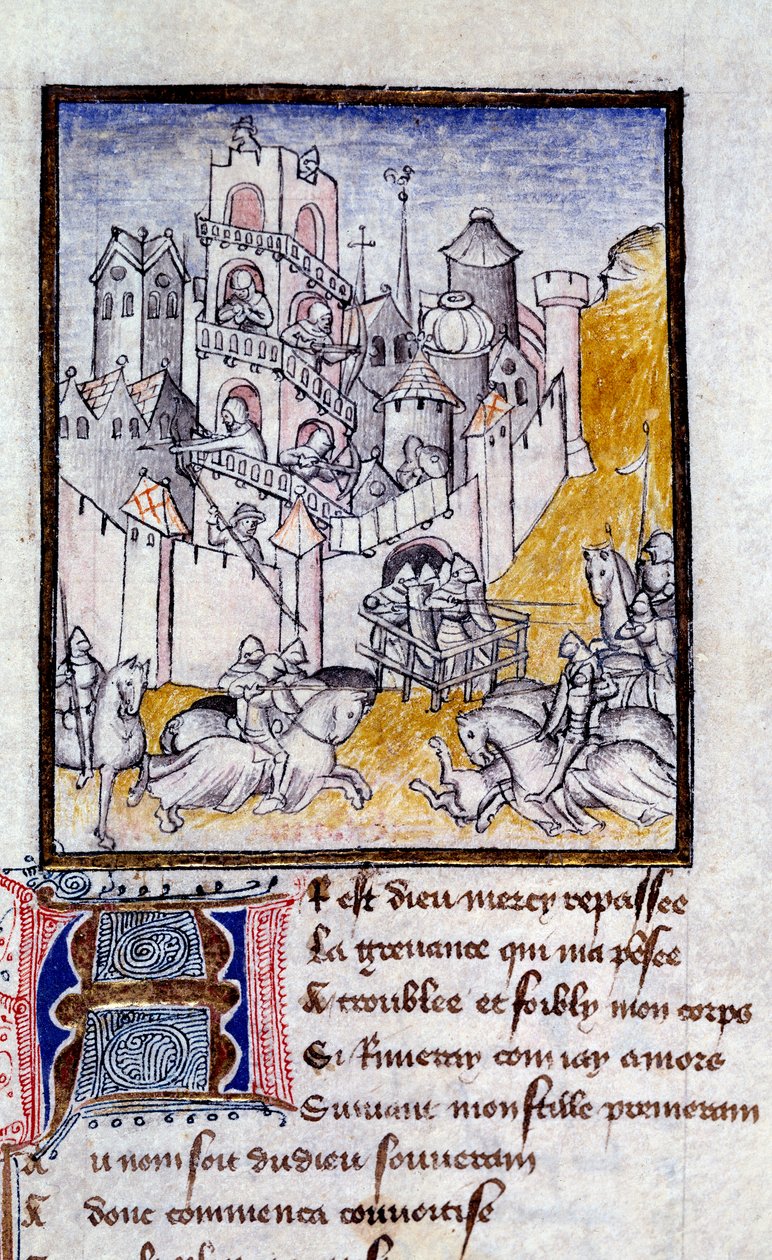 R est dieu mercy repassee
La greuance qui ma pēsee
A troublee et foibly mon corps
Si rimeray com iay amors
Suiuant mon stille premerain
Au nom soit du dieu souuerain
Adonc commenca couuoitise